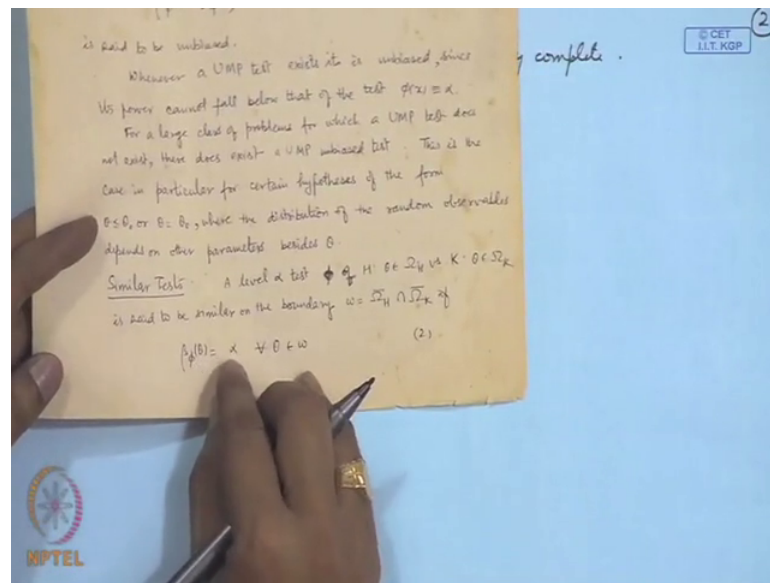 2
© CET
I.I.T. KGP
complete.
is said to be unbiased.
Whenever a UMP test exists it is unbiased, since
its power cannot fall below that of the test φ(x) ≡ α.
For a large class of problems for which a UMP test does
not exist, there does exist a UMP unbiased test. This is the
case in particular for certain hypotheses of the form
θ ≤ θ₀ or θ = θ₀, where the distribution of the random observables
depends on other parameters besides θ.
Similar Tests: A level α test φ of H: θ ∈ Ω_H vs K: θ ∈ Ω_K
is said to be similar on the boundary ω = Ω̄_H ∩ Ω̄_K if
β_φ(θ) = α ∀ θ ∈ ω (2).
NPTEL